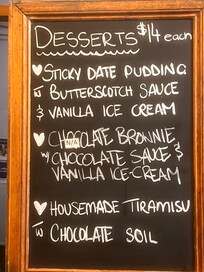 DESSERTS $14 each
STICKY DATE PUDDING
w BUTTERSCOTCH SAUCE
& VANILLA ICE CREAM
CHOCOLATE BROWNIE
w CHOCOLATE SAUCE &
VANILLA ICE-CREAM
HOUSEMADE TIRAMISU
w CHOCOLATE SOIL